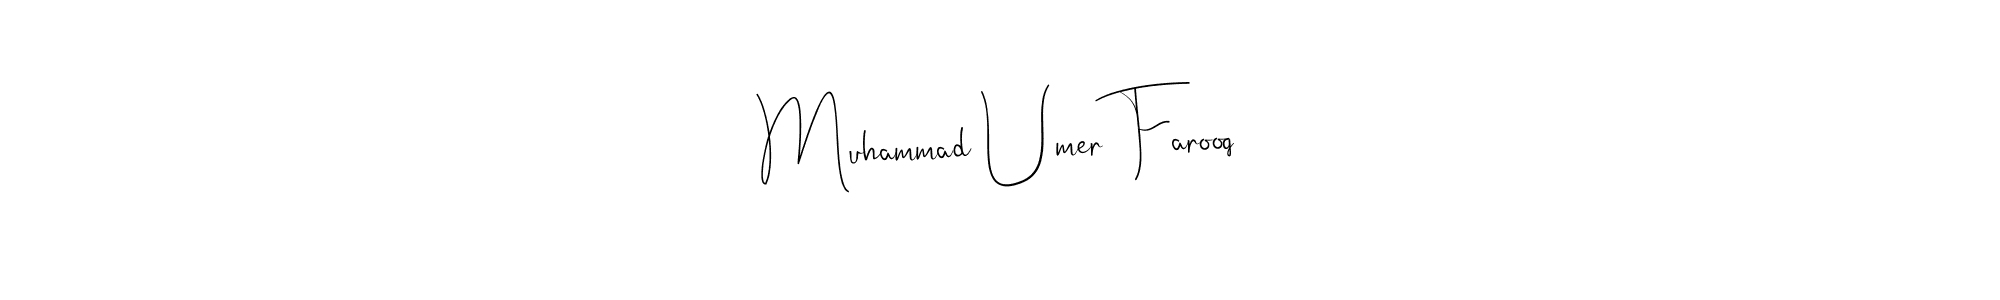 Muhammad Umer Farooq